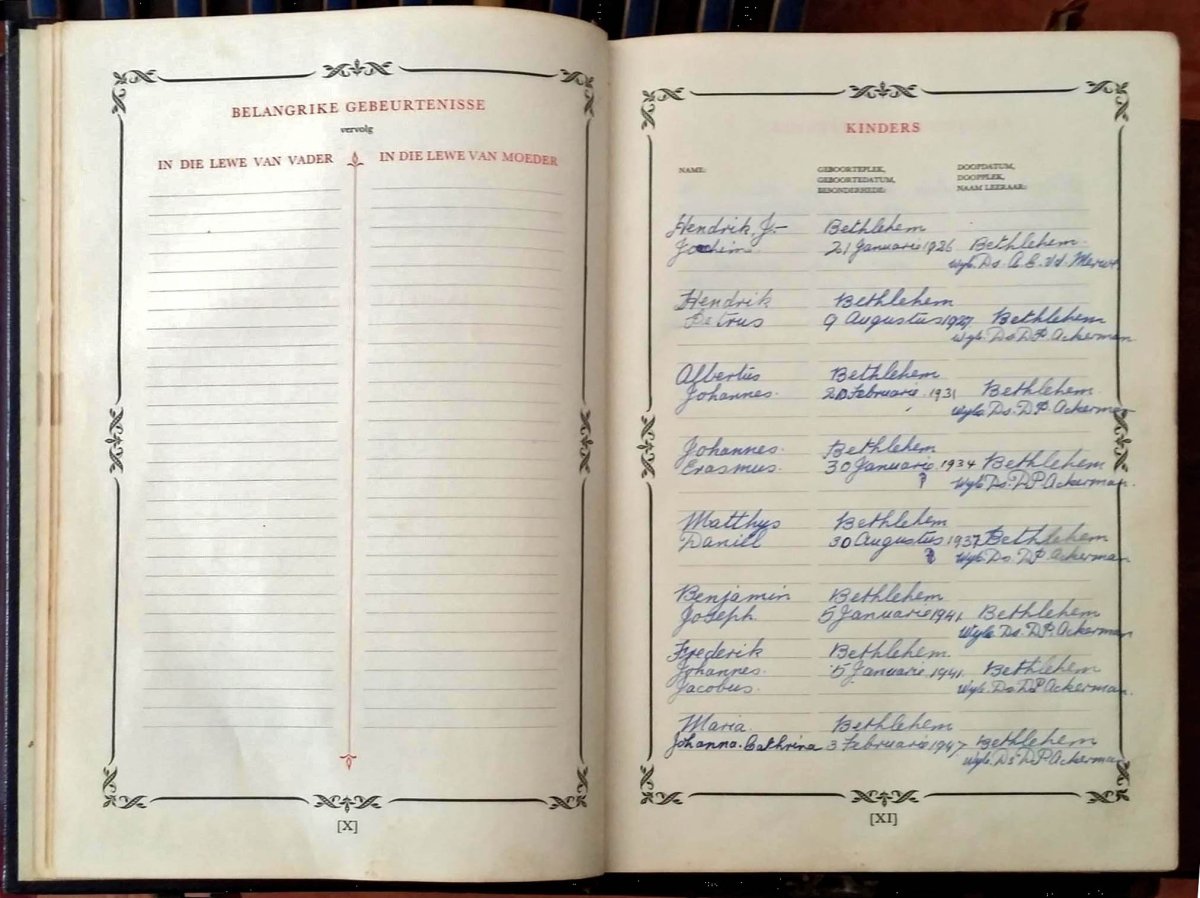 BELANGRIKE GEBEURTENISSE
vervolg
IN DIE LEWE VAN VADER IN DIE LEWE VAN MOEDER
[X]
KINDERS
NAME: GEBOORTEPLEK, DOOPDATUM,
GEBOORTEDATUM, DOOPPLEK,
BESONDERHEDE: NAAM LEERAAR:
Hendrik J:- Bethlehem
Jochim 21 Januarie 1926 Bethlehem.
wyle. Ds. A. E. vd. Merwe
Hendrik Bethlehem
Petrus 9 Augustus 1927 Bethlehem
Wyle. Ds. DP. Ackerman
Albertus Bethlehem.
Johannes. Februarie. 1931 Bethlehem
Wyle. Ds. DP. Ackerman
Johannes. Bethlehem
Erasmus. 30 Januarie 1934 Bethlehem
Wyle Ds. DP Ackerman.
Matthys Bethlehem
Daniël 30 Augustus 1937 Bethlehem
Wyle. Ds. DP. Ackerman
Benjamin Bethlehem
Joseph. 5 Januarie 1941 Bethlehem
Wyle Ds. DP. Ackerman
Frederik Bethlehem.
Johannes. 5 Januarie 1941. Bethlehem
Jacobus. Wyle. Ds. DP Ackerman.
Maria. Bethlehem
Johanna. Cathrina 3 Februarie 1947 Bethlehem
Wyle. Ds DP. Ackerman
[XI]